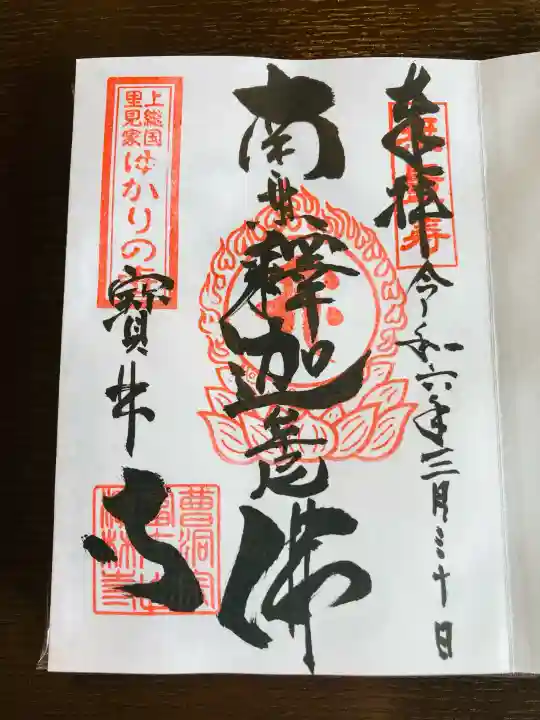 奉拝
令和六年三月三十日
南無釋迦牟尼佛
上総国
里見家
ゆかりの
寶林寺
曹洞宗